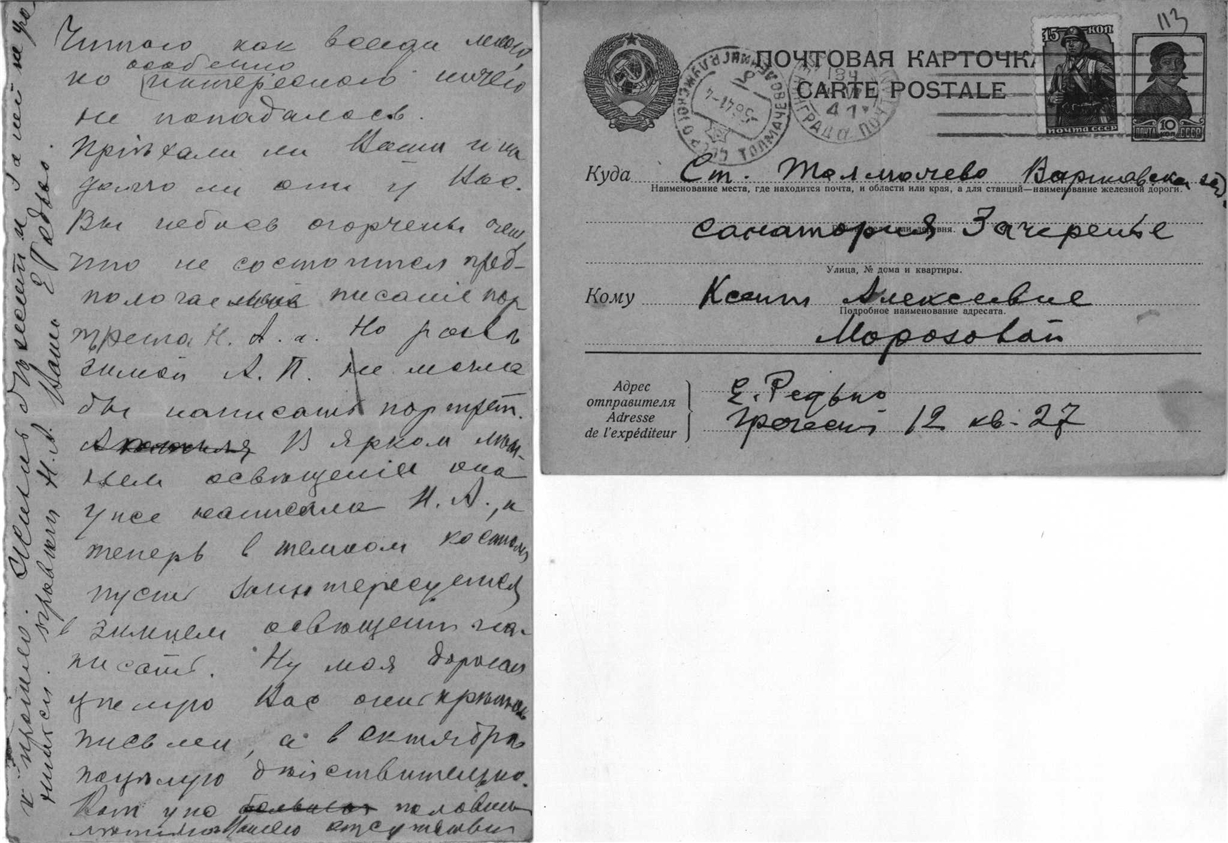 Читаю как всегда много
но особенно интересного ничего
не попадалось.
Приѣхали ли Ваши и на
долго ли они у Вас.
Вы небось огорчены очень
что не состоится пред-
полагаемый писание пор
трета Н. А. а. Но развѣ
зимой А. П. не могла
бы написать портрет.
В ярком
освѣщеніи она
уже написала Н. А., и
теперь в темном костюмѣ
пусть заинтересуется
в зимнем освѣщеніи на-
писать. Ну моя дорогая
цѣлую Вас очень крѣпко
письмен, а в октябрѣ
поцѣлую дѣйствительно.
Вот уже половина
Вашего отсутствия
и прошло.
Н. А. Ваша Е Редько.
113
ПОЧТОВАЯ КАРТОЧКА
CARTE POSTALE
15 КОП
ПОЧТА СССР
10
ПОЧТА СССР
ТОЛМАЧЕВО
5641-4
Куда Ст. Толмачево Варшавской жд.
Наименование места, где находится почта, и области или края, а для станций—наименование железной дороги.
санатория Заречье
Улица, № дома и квартиры.
Кому Ксении Алексѣевне
Подробное наименование адресата.
Морозовой
Адрес
отправителя
Adresse
de l'expéditeur
Е. Редько
12 кв. 27